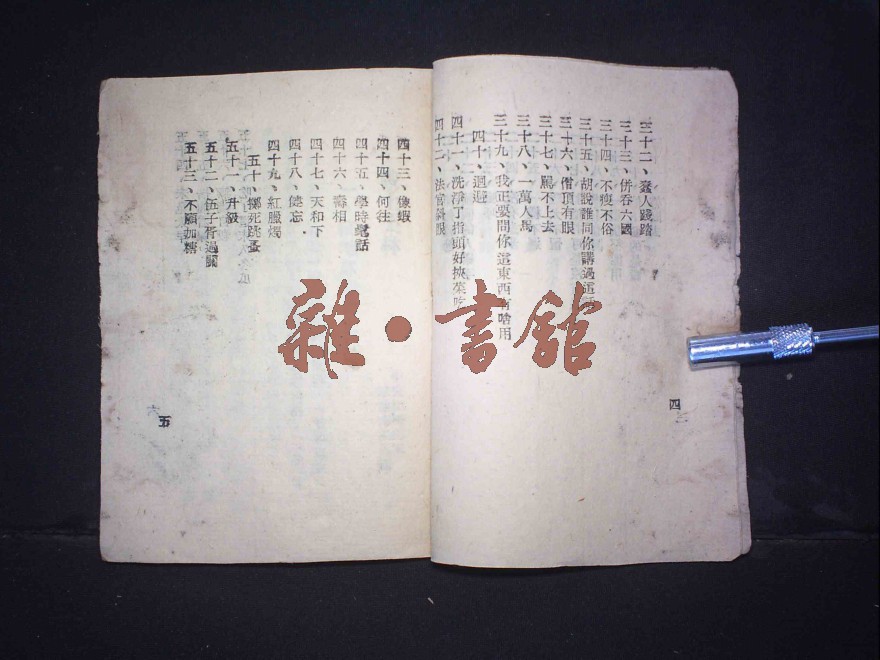 三十二、蠢人踐踏
三十三、併吞六國
三十四、不瘦不俗
三十五、胡說誰同你講過這話
三十六、僧頂有眼
三十七、罵不上去
三十八、一萬人馬
三十九、我正要問你這東西有啥用
四十、迴避
四十一、洗淨了指頭好挾菜吃
四十二、法官斜眼
四
四十三、像蝦
四十四、何往
四十五、學時髦話
四十六、壽相
四十七、天和下
四十八、健忘
四十九、紅臘燭
五十、擲死跳蚤
五十一、升級
五十二、伍子胥過關
五十三、不願加糖
五
雜·書館